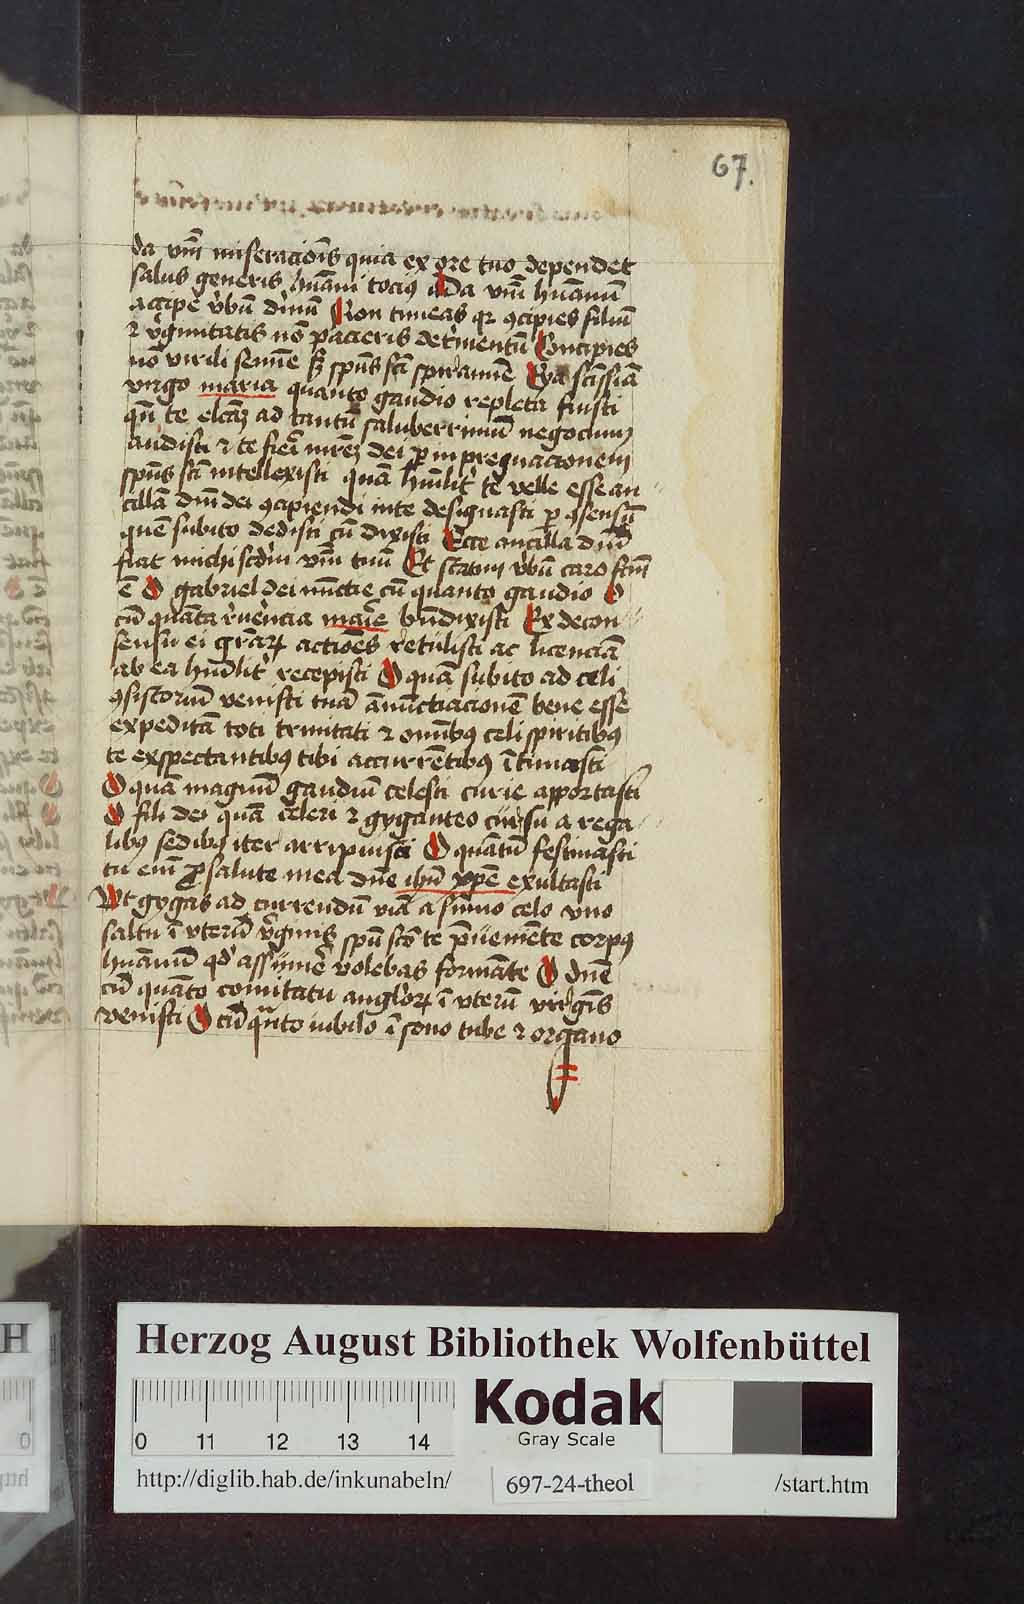 67.
da vm̄ miseracōis quia ex ore tuo dependet
salus generis hūani tociꝰ Da vm̄ hūanū
accipe v̾bū diuinū Non timeas qꝛ ꝯcipies filiū
⁊ v̾ginitatis nō pacieris det̾mentū Concipies
nō virili semīe sꝫ spūs sc̄i spiramīe Eya sc̄issīa
virgo maria quanto gaudio repleta fuisti
qn̄ te elcāꝫ ad tantū saluberrimū negocium
audisti ⁊ te fieri mr̄eꝫ dei ꝑ inpregnacionem
spūs sc̄i intellexisti quā hūilit̾ te velle esse an
cillā dn̄i dei ꝯcipiendi in te designasti ꝑ ꝯsensū
quē subito dedisti cū dixisti Ecce ancilla dn̄i
fiat michi scd̾m vm̄ tuū Et statim v̾bū caro fc̄m̄
ē O gabriel dei nūctie cū quanto gaudio O
cū quāta r̾uer̾ncia marie bn̄dixisti Ex decon
sensu ei gr̄aꝝ actiōes retulisti ac licenciā
ab ea hūilit̾ recepisti O quā subito ad celi
ꝯsistoriū venisti tuā ānūctiacionē bene esse
expeditā toti trinitati ⁊ omībꝰ celi spiritibꝰ
te exspectantibꝰ tibi accurrētibꝰ ītimasti
O quā magnū gaudiū celesti curie apportasti
O fili dei quā celeri ⁊ gyganteo cursu a rega
libꝰ sedibꝰ iter arripuisti O quātū festinasti
tu em̄ ꝓ salute mea dn̄e ih̄u xp̄e exultasti
Vt gygas ad currendū viā a sūmo celo vno
saltu ī vterū v̾ginis spū scō te p̄ueniēte corpꝰ
hūanū qd̾ assūme̾ volebas formāte O dn̄e
cū quāto comitatu angloꝝ ī vterū virgīs
venisti O cū quāto iubilo ī sono tube ⁊ organo
Herzog August Bibliothek Wolfenbüttel
0 11 12 13 14
Kodak
Gray Scale
http://diglib.hab.de/inkunabeln/ 697-24-theol /start.htm